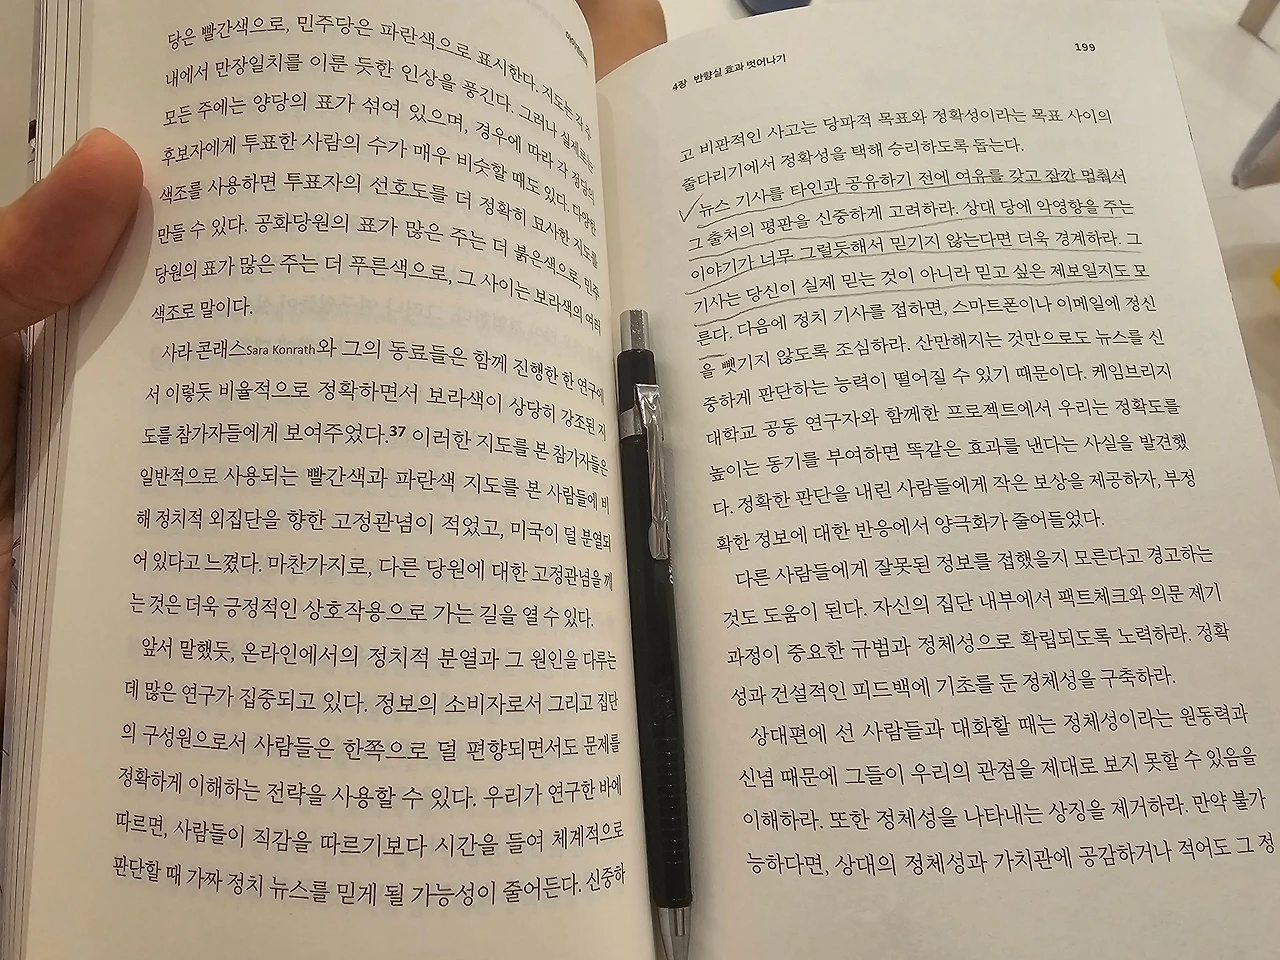 당은 빨간색으로, 민주당은 파란색으로 표시한다. 지도는 각 주
내에서 만장일치를 이룬 듯한 인상을 풍긴다. 그러나 실제로는
모든 주에는 양당의 표가 섞여 있으며, 경우에 따라 각 정당의
후보자에게 투표한 사람의 수가 매우 비슷할 때도 있다. 다양한
색조를 사용하면 투표자의 선호도를 더 정확히 묘사한 지도를
만들 수 있다. 공화당원의 표가 많은 주는 더 붉은색으로, 민주
당원의 표가 많은 주는 더 푸른색으로, 그 사이는 보라색의 여러
색조로 말이다.
사라 콘래스Sara Konrath와 그의 동료들은 함께 진행한 한 연구에
서 이렇듯 비율적으로 정확하면서 보라색이 상당히 강조된 지
도를 참가자들에게 보여주었다.37 이러한 지도를 본 참가자들은
일반적으로 사용되는 빨간색과 파란색 지도를 본 사람들에 비
해 정치적 외집단을 향한 고정관념이 적었고, 미국이 덜 분열되
어 있다고 느꼈다. 마찬가지로, 다른 당원에 대한 고정관념을 깨
는 것은 더욱 긍정적인 상호작용으로 가는 길을 열 수 있다.
앞서 말했듯, 온라인에서의 정치적 분열과 그 원인을 다루는
데 많은 연구가 집중되고 있다. 정보의 소비자로서 그리고 집단
의 구성원으로서 사람들은 한쪽으로 덜 편향되면서도 문제를
정확하게 이해하는 전략을 사용할 수 있다. 우리가 연구한 바에
따르면, 사람들이 직감을 따르기보다 시간을 들여 체계적으로
판단할 때 가짜 정치 뉴스를 믿게 될 가능성이 줄어든다. 신중하
4장 반향실 효과 벗어나기
199
고 비판적인 사고는 당파적 목표와 정확성이라는 목표 사이의
줄다리기에서 정확성을 택해 승리하도록 돕는다.
뉴스 기사를 타인과 공유하기 전에 여유를 갖고 잠깐 멈춰서
그 출처의 평판을 신중하게 고려하라. 상대 당에 악영향을 주는
이야기가 너무 그럴듯해서 믿기지 않는다면 더욱 경계하라. 그
기사는 당신이 실제 믿는 것이 아니라 믿고 싶은 제보일지도 모
른다. 다음에 정치 기사를 접하면, 스마트폰이나 이메일에 정신
을 뺏기지 않도록 조심하라. 산만해지는 것만으로도 뉴스를 신
중하게 판단하는 능력이 떨어질 수 있기 때문이다. 케임브리지
대학교 공동 연구자와 함께한 프로젝트에서 우리는 정확도를
높이는 동기를 부여하면 똑같은 효과를 낸다는 사실을 발견했
다. 정확한 판단을 내린 사람들에게 작은 보상을 제공하자, 부정
확한 정보에 대한 반응에서 양극화가 줄어들었다.
다른 사람들에게 잘못된 정보를 접했을지 모른다고 경고하는
것도 도움이 된다. 자신의 집단 내부에서 팩트체크와 의문 제기
과정이 중요한 규범과 정체성으로 확립되도록 노력하라. 정확
성과 건설적인 피드백에 기초를 둔 정체성을 구축하라.
상대편에 선 사람들과 대화할 때는 정체성이라는 원동력과
신념 때문에 그들이 우리의 관점을 제대로 보지 못할 수 있음을
이해하라. 또한 정체성을 나타내는 상징을 제거하라. 만약 불가
능하다면, 상대의 정체성과 가치관에 공감하거나 적어도 그 정